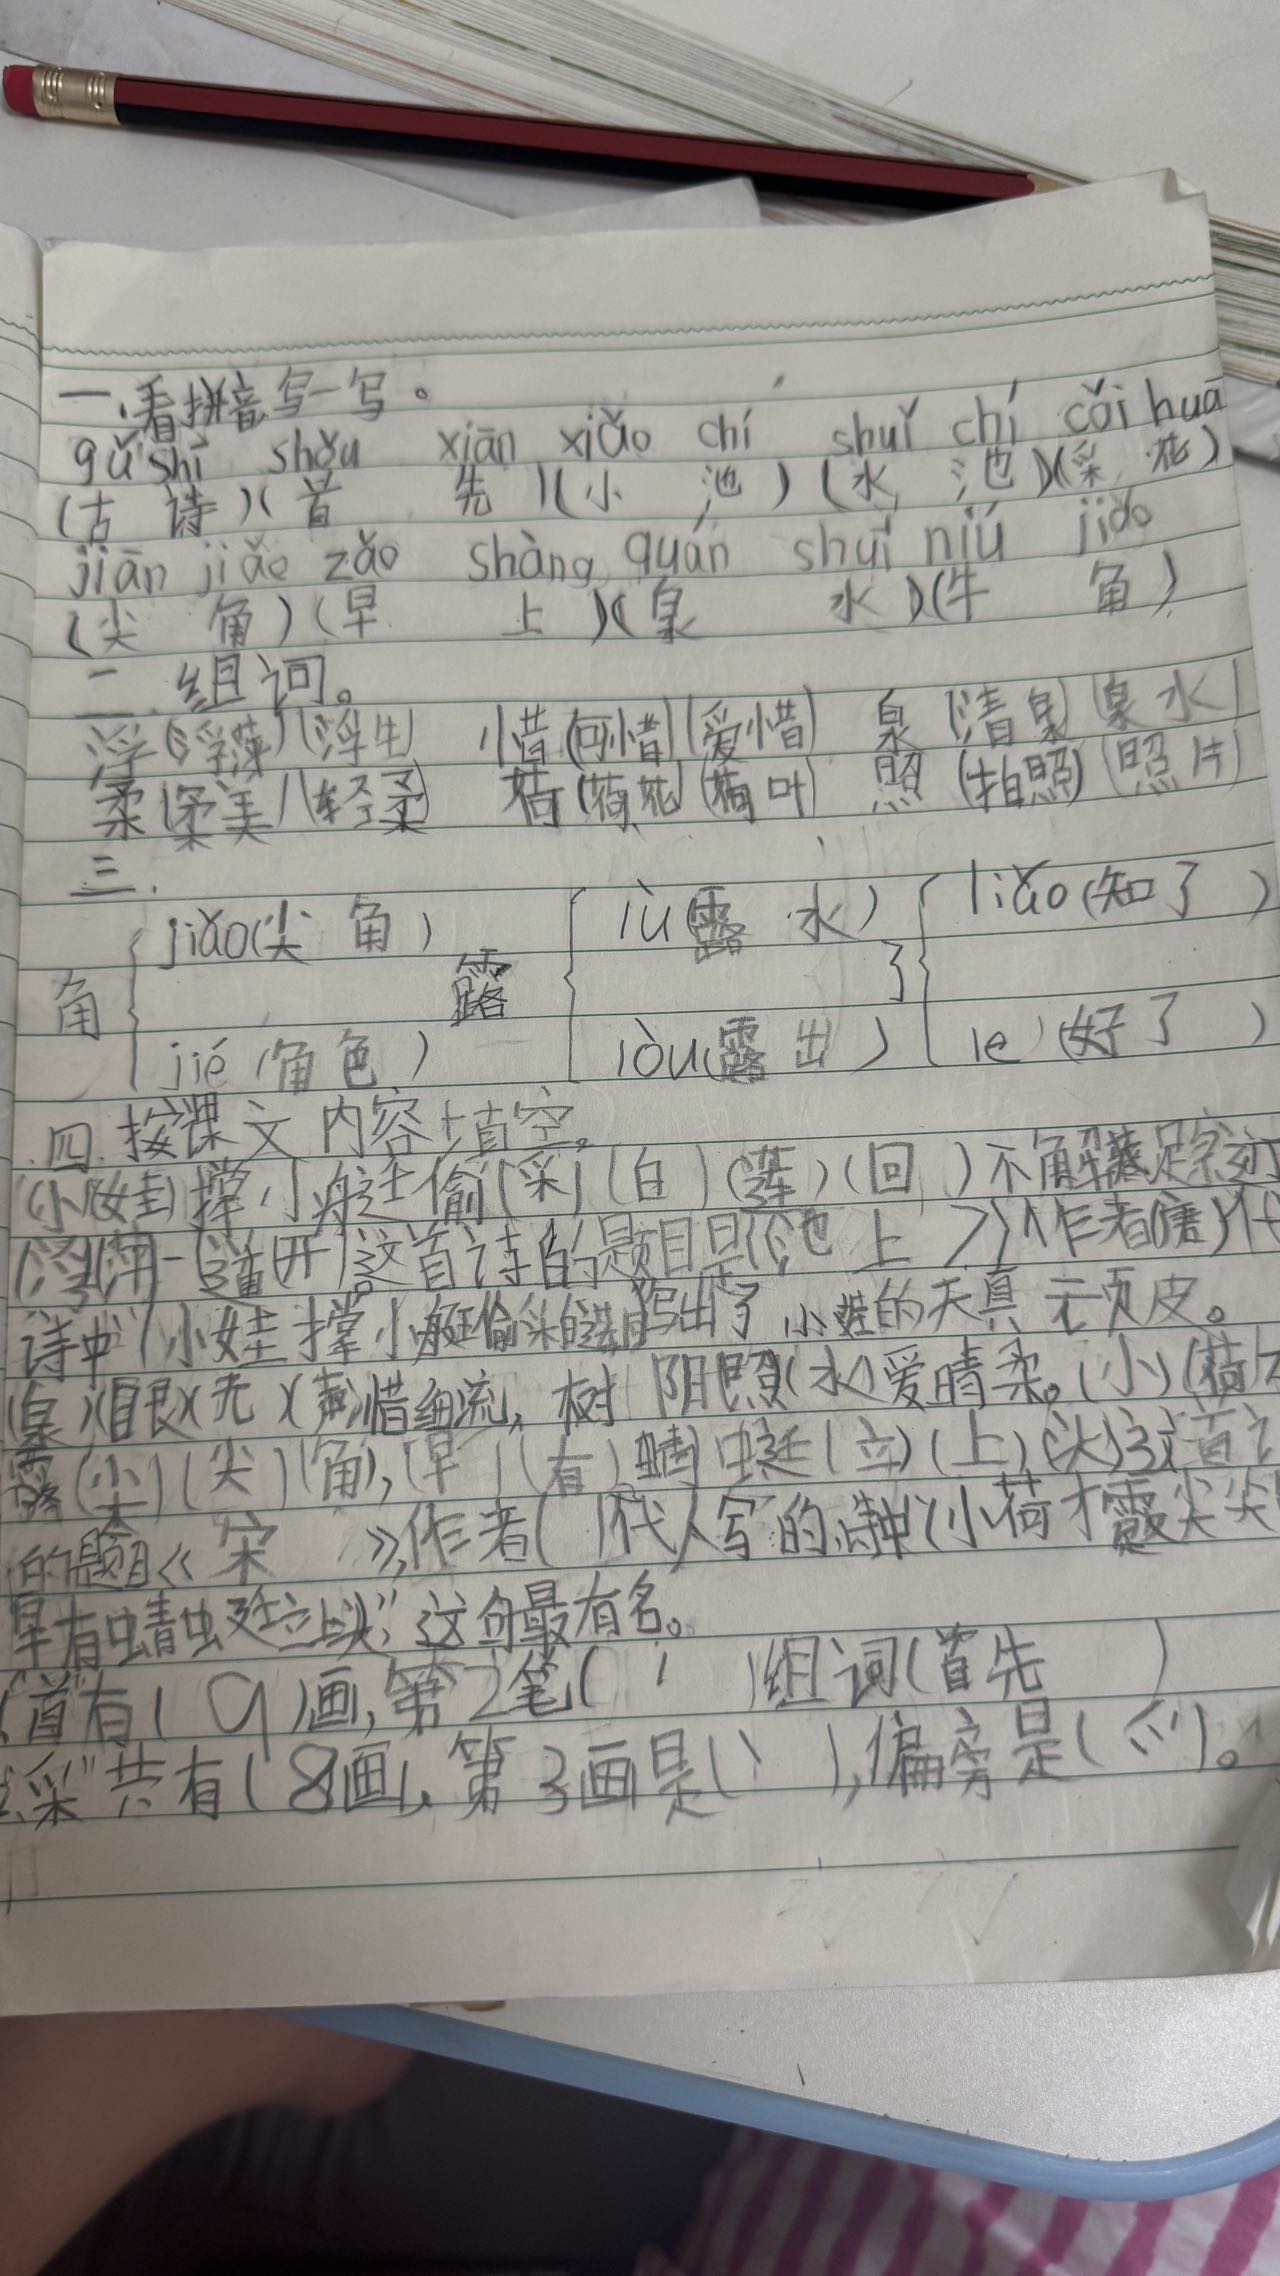 一、看拼音写一写。
gǔ shī shǒu xiān xiǎo chí shuǐ chí cǎi huā
(古 诗)(首 先)(小 池)(水 池)(采 花)
jiān jiǎo zǎo shàng quán shuǐ niú jiǎo
(尖 角)(早 上)(泉 水)(牛 角)
二.组词。
浮(浮萍)(浮生) 惜(可惜)(爱惜) 泉(清泉)(泉水)
柔(柔美)(轻柔) 荷(荷花)(荷叶) 照(拍照)(照片)
三.
jiǎo(尖 角) lù(露 水) liǎo(知了)
角 露 了
jié(角色) lòu(露出) le(好了)
四.按课文内容填空。
(小)(娃)撑小艇,偷(采)(白)(莲)(回)不解藏踪迹
(浮)(萍)一(道)(开)。这首诗的题目是《池上》,作者(唐)代
诗中"小娃撑小艇偷采白莲回"写出了小娃的天真 顽皮。
(泉)(眼)(无)(声)惜细流,树阴照(水)爱晴柔。(小)(荷)
露(尖)(尖)(角),(早)(有)蜻蜓(立)(上)(头)这首
的题目《宋 》,作者( )代人写的,诗中"小荷才露尖尖
早有蜻蜓立上头,"这句最有名。
"首有(9)画,第2笔( )组词(首先 )
"采"共有(8画),第3画是(丶),偏旁是(爫)。